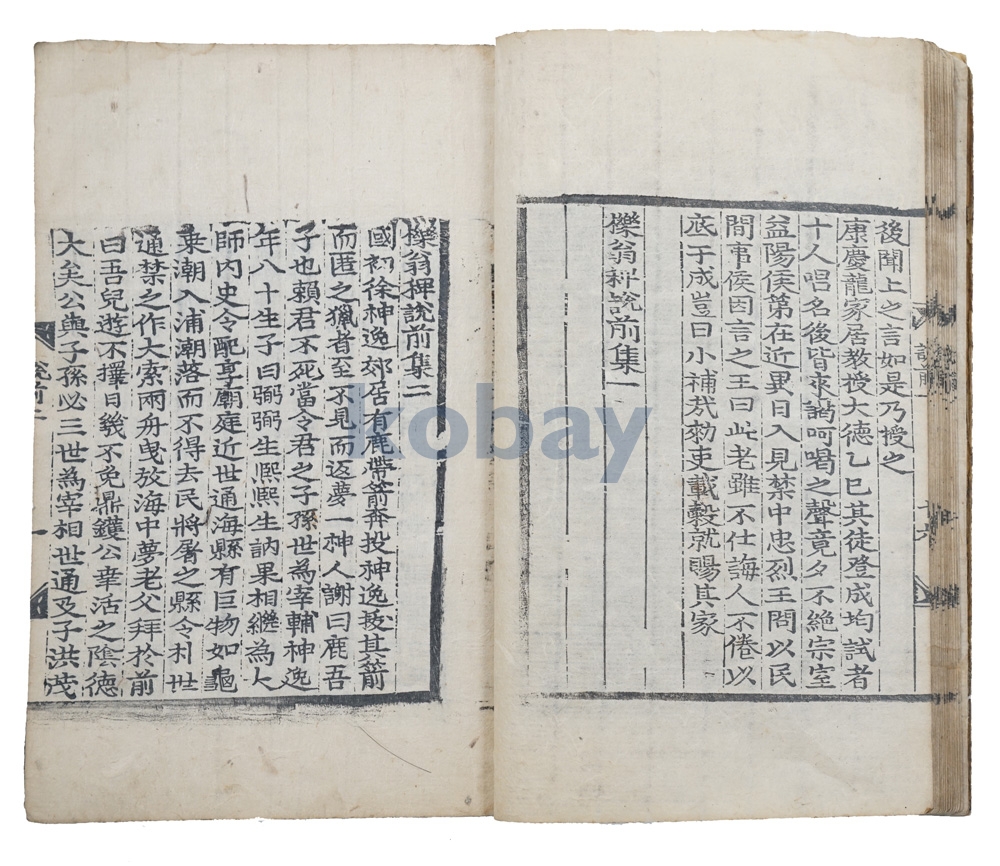 後聞上之言如是乃授之
康慶龍家居教授大德乙巳其徒登成均試者
十人唱名後皆來謁呵喝之聲竟夕不絶宗室
益陽侯第在近異日入見禁中忠烈王問以民
間事侯因言之王曰此老雖不仕誨人不倦以
底于成豈曰小補㢤勑吏載穀就賜其家
櫟翁稗說前集一
櫟翁稗說前集二
國初徐神逸郊居有鹿帶箭奔投神逸拔其箭
而匿之獵者至不見而返夢一神人謝曰鹿吾
子也賴君不死當令君之子孫世為宰輔神逸
年八十生子曰弼弼生熙熙生訥果相繼為大
師內史令配享廟庭近世通海縣有巨物如龜
乗潮入浦潮落而不得去民將屠之縣令朴世
通禁之作大索兩舟曳放海中夢老父拜於前
曰吾兒遊不擇日幾不免鼎鑊公幸活之陰德
大矣公與子孫必三世為宰相世通及子洪茂
kobay